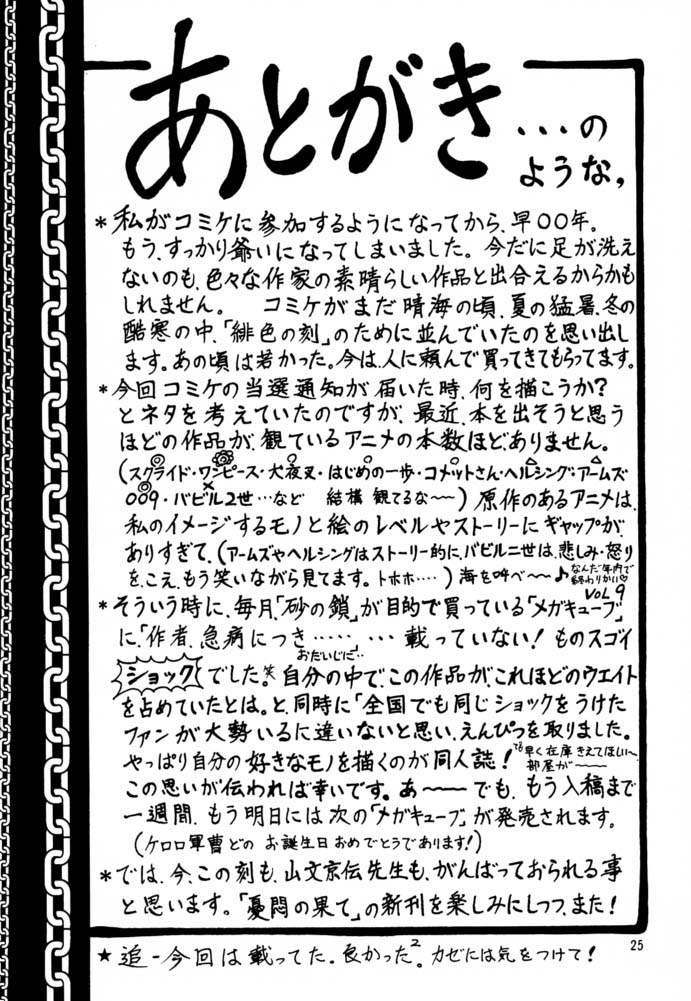 あとがき
…の
ような。
*私がコミケに参加するようになってから、早〇〇年。
もう、すっかり爺いになってしまいました。今だに足が洗え
ないのも、色々な作家の素晴らしい作品と出合えるからかも
しれません。 コミケがまだ晴海の頃、夏の猛暑、冬の
酷寒の中、「緋色の刻」のために並んでいたのを思い出し
ます。あの頃は若かった。今は、人に頼んで買ってきてもらってます。
*今回コミケの当選通知が届いた時、何を描こうか?
とネタを考えていたのですが、最近、本を出そうと思う
ほどの作品が、観ているアニメの本数ほど、ありません。
(スクライド・ワンピース・犬夜叉・はじめの一歩・コメットさん・ヘルシング・アームズ
009・バビル2世…など 結構 観てるな〜〜)原作のあるアニメは、
私のイメージするモノと絵のレベルやストーリーにギャップが
ありすぎて、(アームズやヘルシングはストーリー的に、バビル二世は、悲しみ・怒り
を、こえ、もう笑いながら見てます。トホホ‥‥)海を呼べ〜〜♪
なんだ年内で
終わりかい♡
*そういう時に、毎月「砂の鎖」が目的で買っている「メガキューブ」
VOL9
に、「作者、急病につき……」…載っていない!ものスゴイ
おだいじに‥
ショックでした。笑 自分の中で、この作品が、これほどのウエイト
を占めていたとは。と、同時に「全国でも同じショックをうけた
ファンが大勢いるに違いないと思い、えんぴつを取りました。
やっぱり自分の好きなモノを描くのが同人誌!
でも早く在庫きえてほしい〜
部屋が〜〜
この思いが伝われば幸いです。あ〜〜でも、もう入稿まで
一週間、もう明日には次の「メガキューブ」が発売されます。
(ケロロ軍曹どの お誕生日おめでとうであります!)
*では、今、この刻も、山文京伝先生も、がんばっておられる事
と思います。「憂悶の果て」の新刊を楽しみにしつつ、また!
★追-今回は載ってた。良かった2。カゼには気をつけて!
25